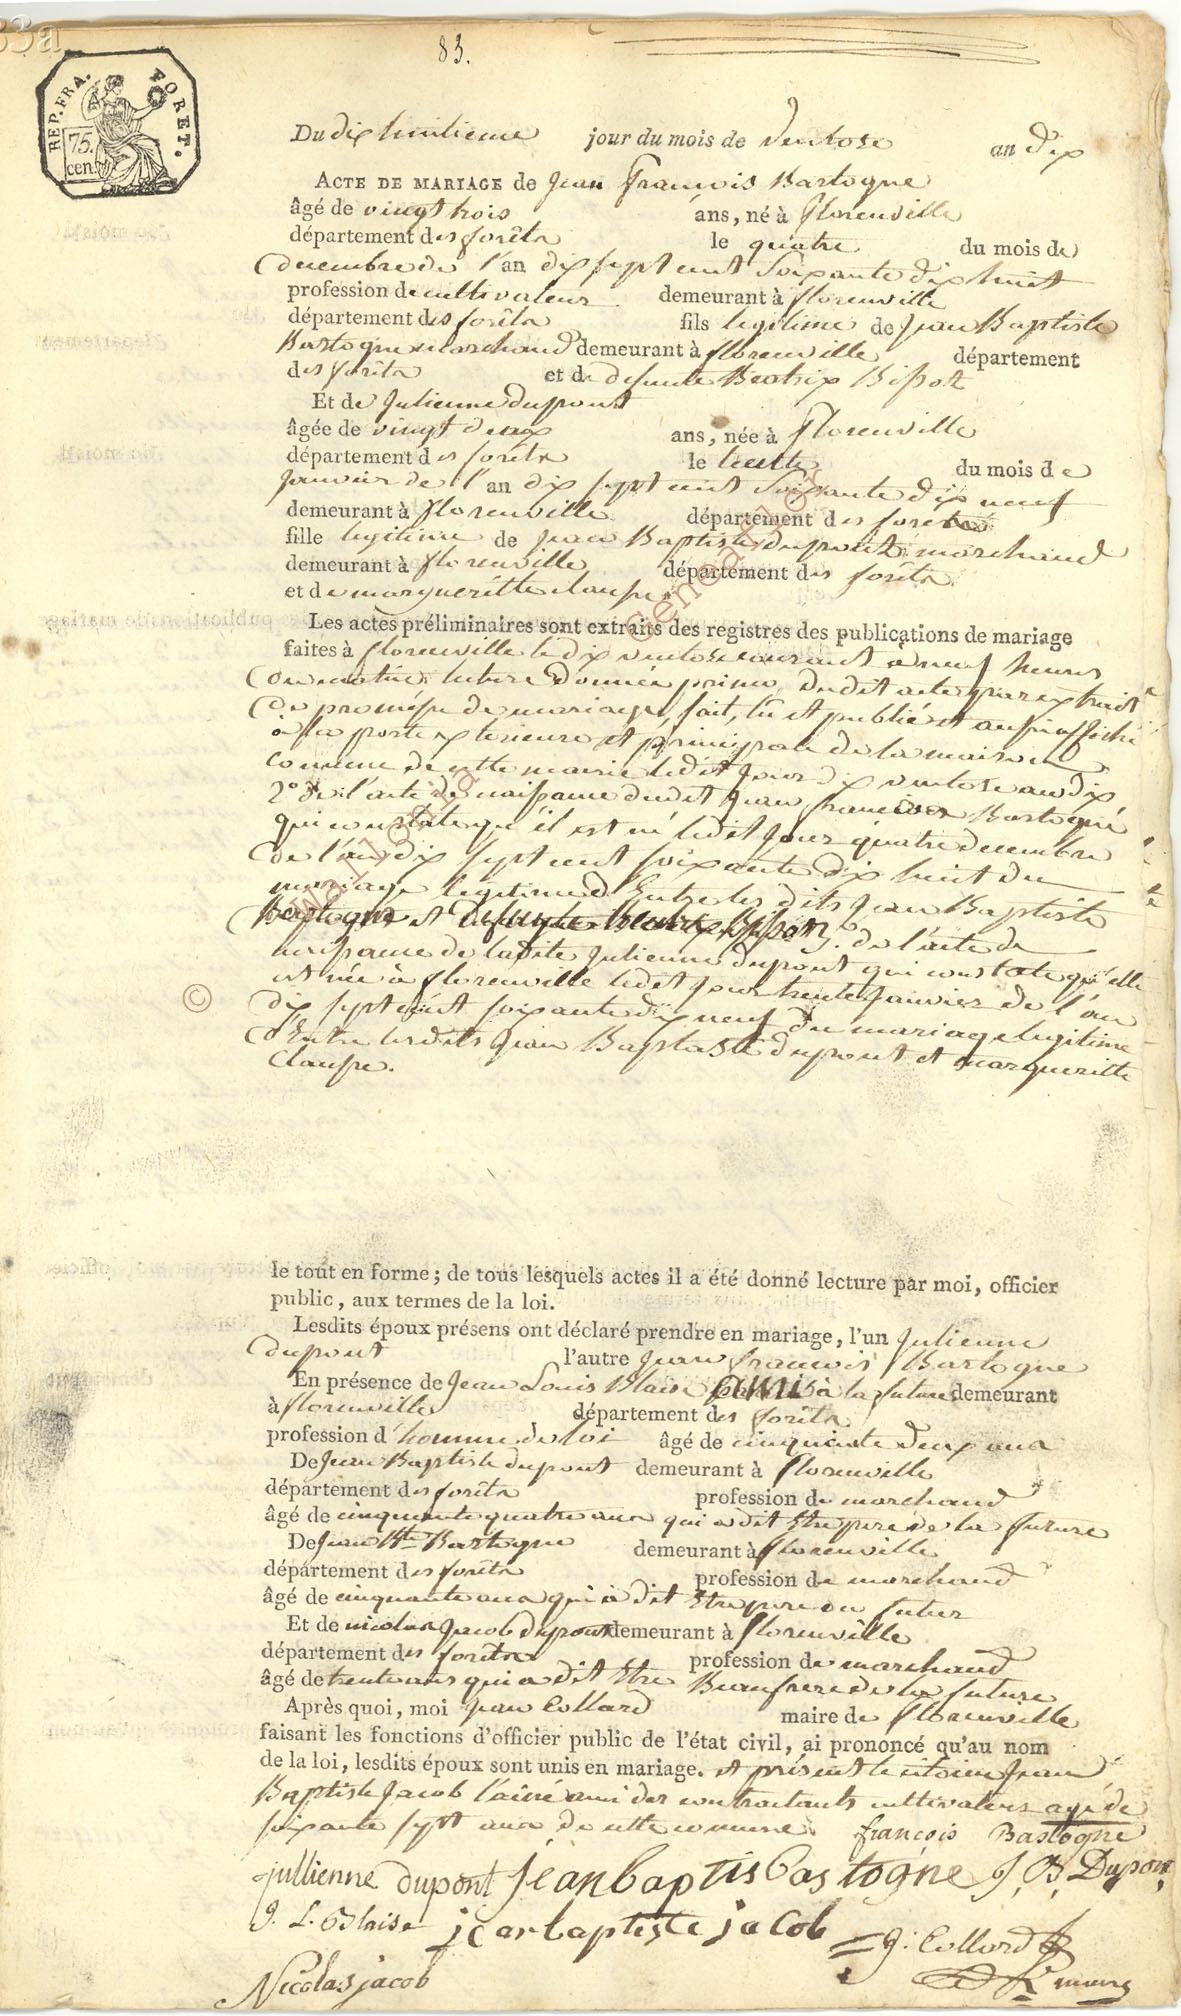 83a
83.
REP. FRA. FORET.
75. cen.
Du dix huitieme jour du mois de ventose an dix
ACTE DE MARIAGE de Jean François Bastogne
âgé de vingt trois ans, né à florenville
département des forêts le quatre du mois de
decembre de l'an dix sept cent soixante dix huit
profession de cultivateur demeurant à florenville
département des forêts fils legitime de Jean Baptiste
Bastogne marchand demeurant à florenville département
des forêts et de defunte Beatrix Bissot
Et de Julienne dupont
âgée de vingt deux ans, née à florenville
département des forêts le trente du mois de
Janvier de l'an dix sept cent soixante dix neuf
demeurant à florenville département des forets
fille legitime de Jean Baptiste dupont marchand
demeurant à florenville département des forêts
et de margueritte clausse
Les actes préliminaires sont extraits des registres des publications de mariage
faites à florenville le dix ventose courant à neuf heures
du matin lecture donnée primo dudit acte par extrait
de promesse de mariage, fait, lû et publié et aussi affiché
à la porte exterieure et principale de la maison
commune de cette mairie ledit jour dix ventose an dix
2° de l'acte de naissance dudit Jean françois Bastogne
qui constate qu'il est né ledit jour quatre decembre
de l'an dix sept cent soixante dix huit du
mariage legitime d'Entre lesdits Jean Baptiste
Bastogne et defunte Beatrix Bissot, de l'acte de
naissance de ladite Julienne dupont qui constate qu'elle
est née à florenville ledit jour trente Janvier de l'an
dix sept cent soixante dix neuf du mariage legitime
d'Entre lesdits Jean Baptiste dupont et margueritte
Clausse.
le tout en forme; de tous lesquels actes il a été donné lecture par moi, officier
public, aux termes de la loi.
Lesdits époux présens ont déclaré prendre en mariage, l'un Julienne
dupont l'autre Jean françois Bastogne
En présence de Jean Louis Blaise ami à la future demeurant
à florenville département des forêts
profession d'homme de loi âgé de cinquante deux ans
De Jean Baptiste dupont demeurant à florenville
département des forêts profession de marchand
âgé de cinquante quatre ans qui a dit Etre pere de la future
De Jean Bte Bastogne demeurant à florenville
département des forêts profession de marchand
âgé de cinquante ans qui a dit Etre pere du futur
Et de nicolas Jacob dupont demeurant à florenville
département des forêts profession de marchand
âgé de trente ans qui a dit Etre Beaufrere de la future
Après quoi, moi Jean Collard maire de florenville
faisant les fonctions d'officier public de l'état civil, ai prononcé qu'au nom
de la loi, lesdits époux sont unis en mariage. et présent le citoien Jean
Baptiste Jacob l'ainé ami des contractants cultivateur agé de
soixante sept ans de cette commune. françois Bastogne
jullienne dupont jean baptis bastogne J. B. Dupont
J. L. Blaise jean baptiste jacob J. Collard
Nicolas jacob maire
©